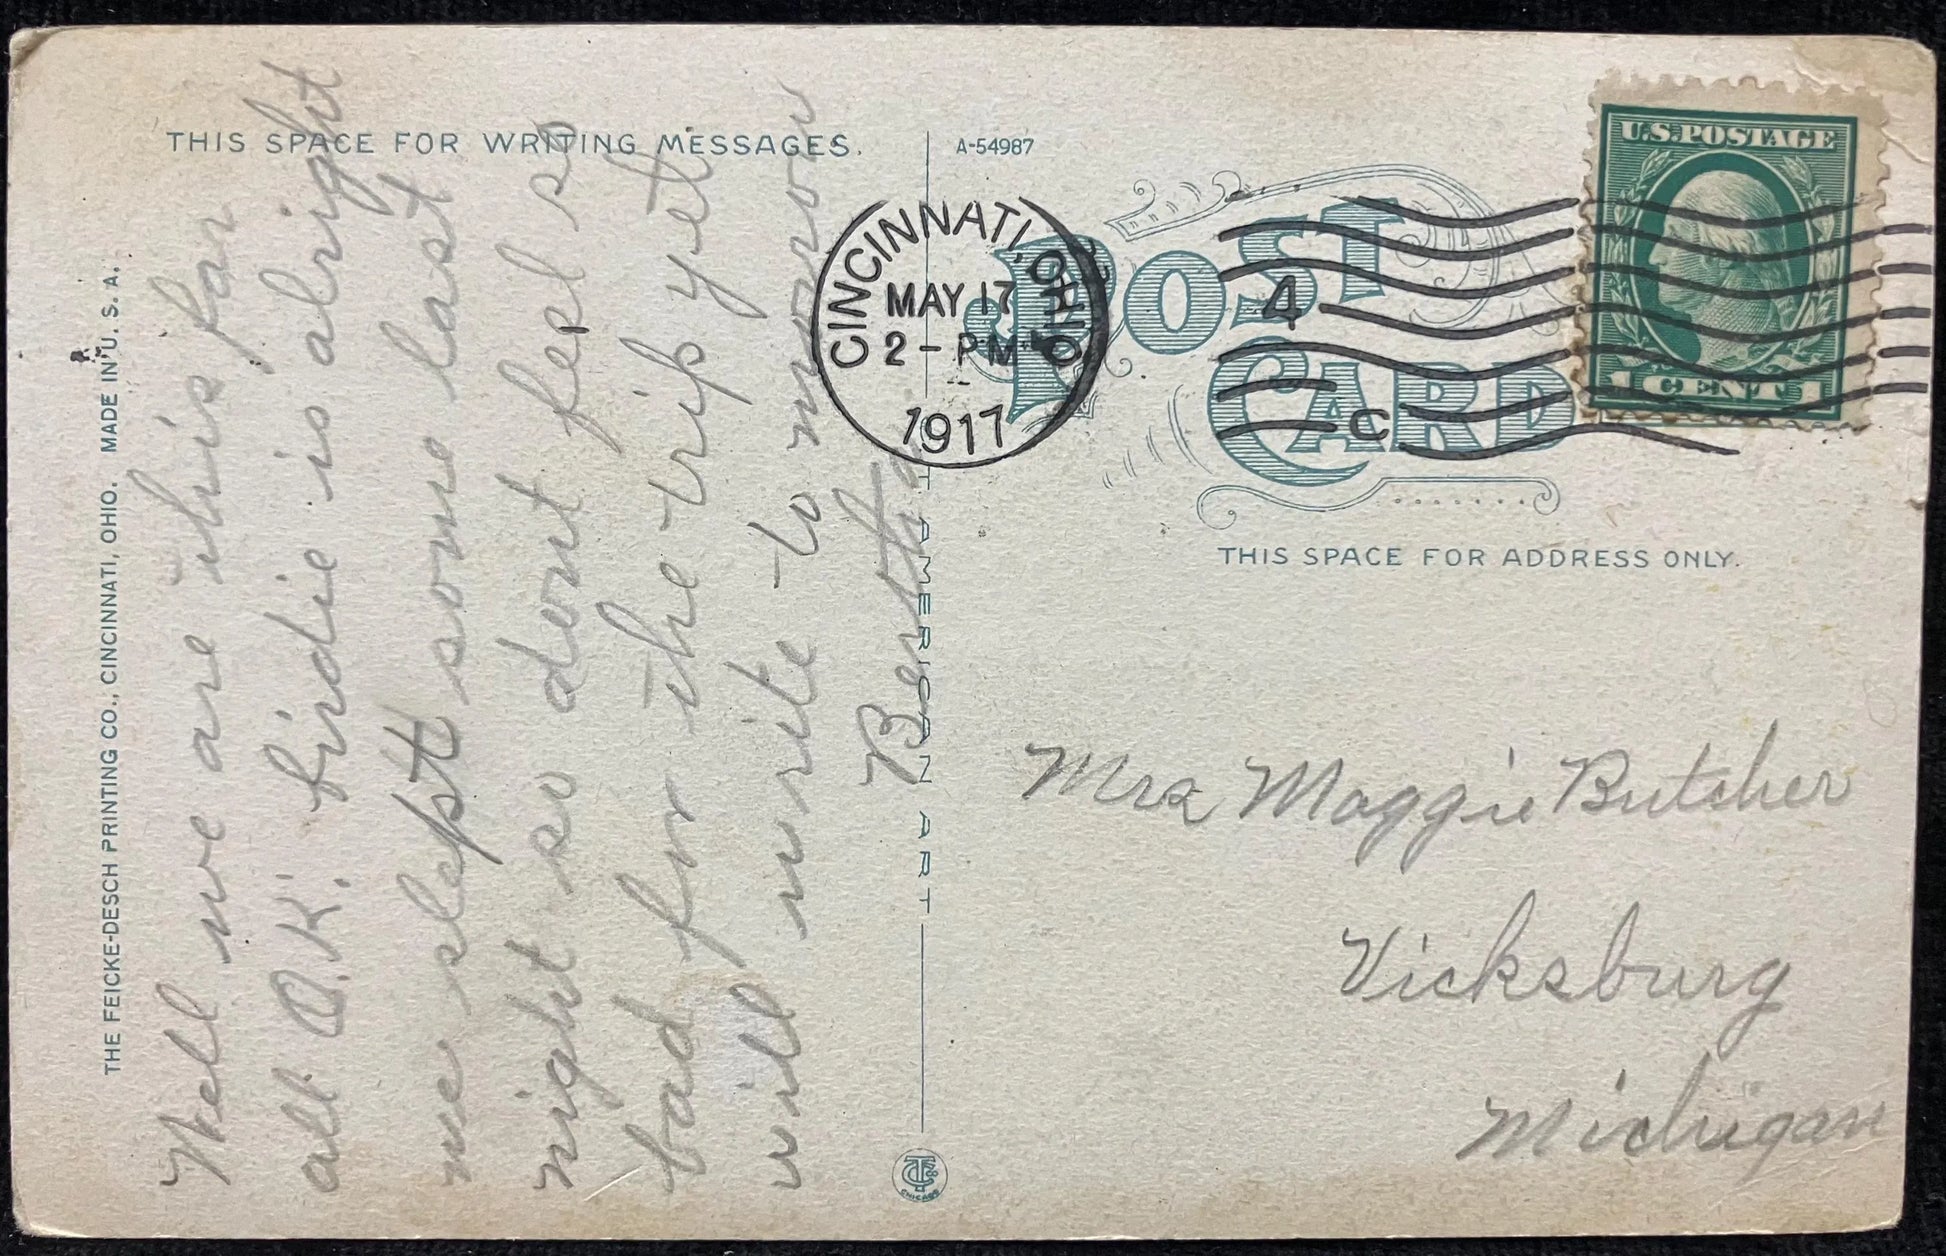 THIS SPACE FOR WRITING MESSAGES.
A-54987
POST
CARD
U.S. POSTAGE
1 CENT 1
CINCINNATI, OHIO
MAY 17
2 - PM
1917
4
C
THIS SPACE FOR ADDRESS ONLY.
THE FEICKE-DESCH PRINTING CO., CINCINNATI, OHIO. MADE IN U.S.A.
Well we are this far
all O.K. birdie is alright
we slept some last
night so dont feel so
bad for the trip yet
will write to morrow
Bertha
AMERICAN ART
CHICAGO
Mrs Maggie Butcher
Vicksburg
Michigan